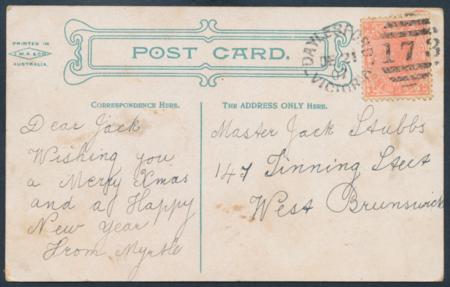 PRINTED IN
AUSTRALIA.
POST CARD.
DAYLESFORD
DE 21
07
VICTORIA
173
CORRESPONDENCE HERE.
THE ADDRESS ONLY HERE.
Dear Jack
Wishing you
a Merry Xmas
and a Happy
New Year
From Myrtle
Master Jack Stubbs
147
West Brunswick